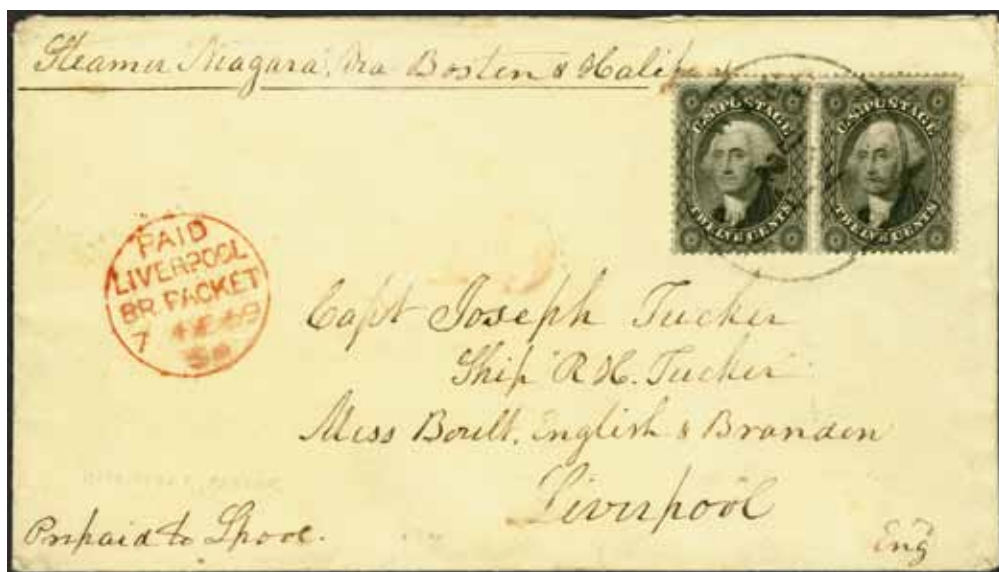 Steamer Niagara, via Boston & Halifax
U.S. POSTAGE
TWELVE CENTS
U.S. POSTAGE
TWELVE CENTS
PAID
LIVERPOOL
BR. PACKET
7 59
Capt Joseph Tucker
Ship R H. Tucker
Mess Boult, English & Brandon
Liverpool
Prepaid to Lpool.
Eng